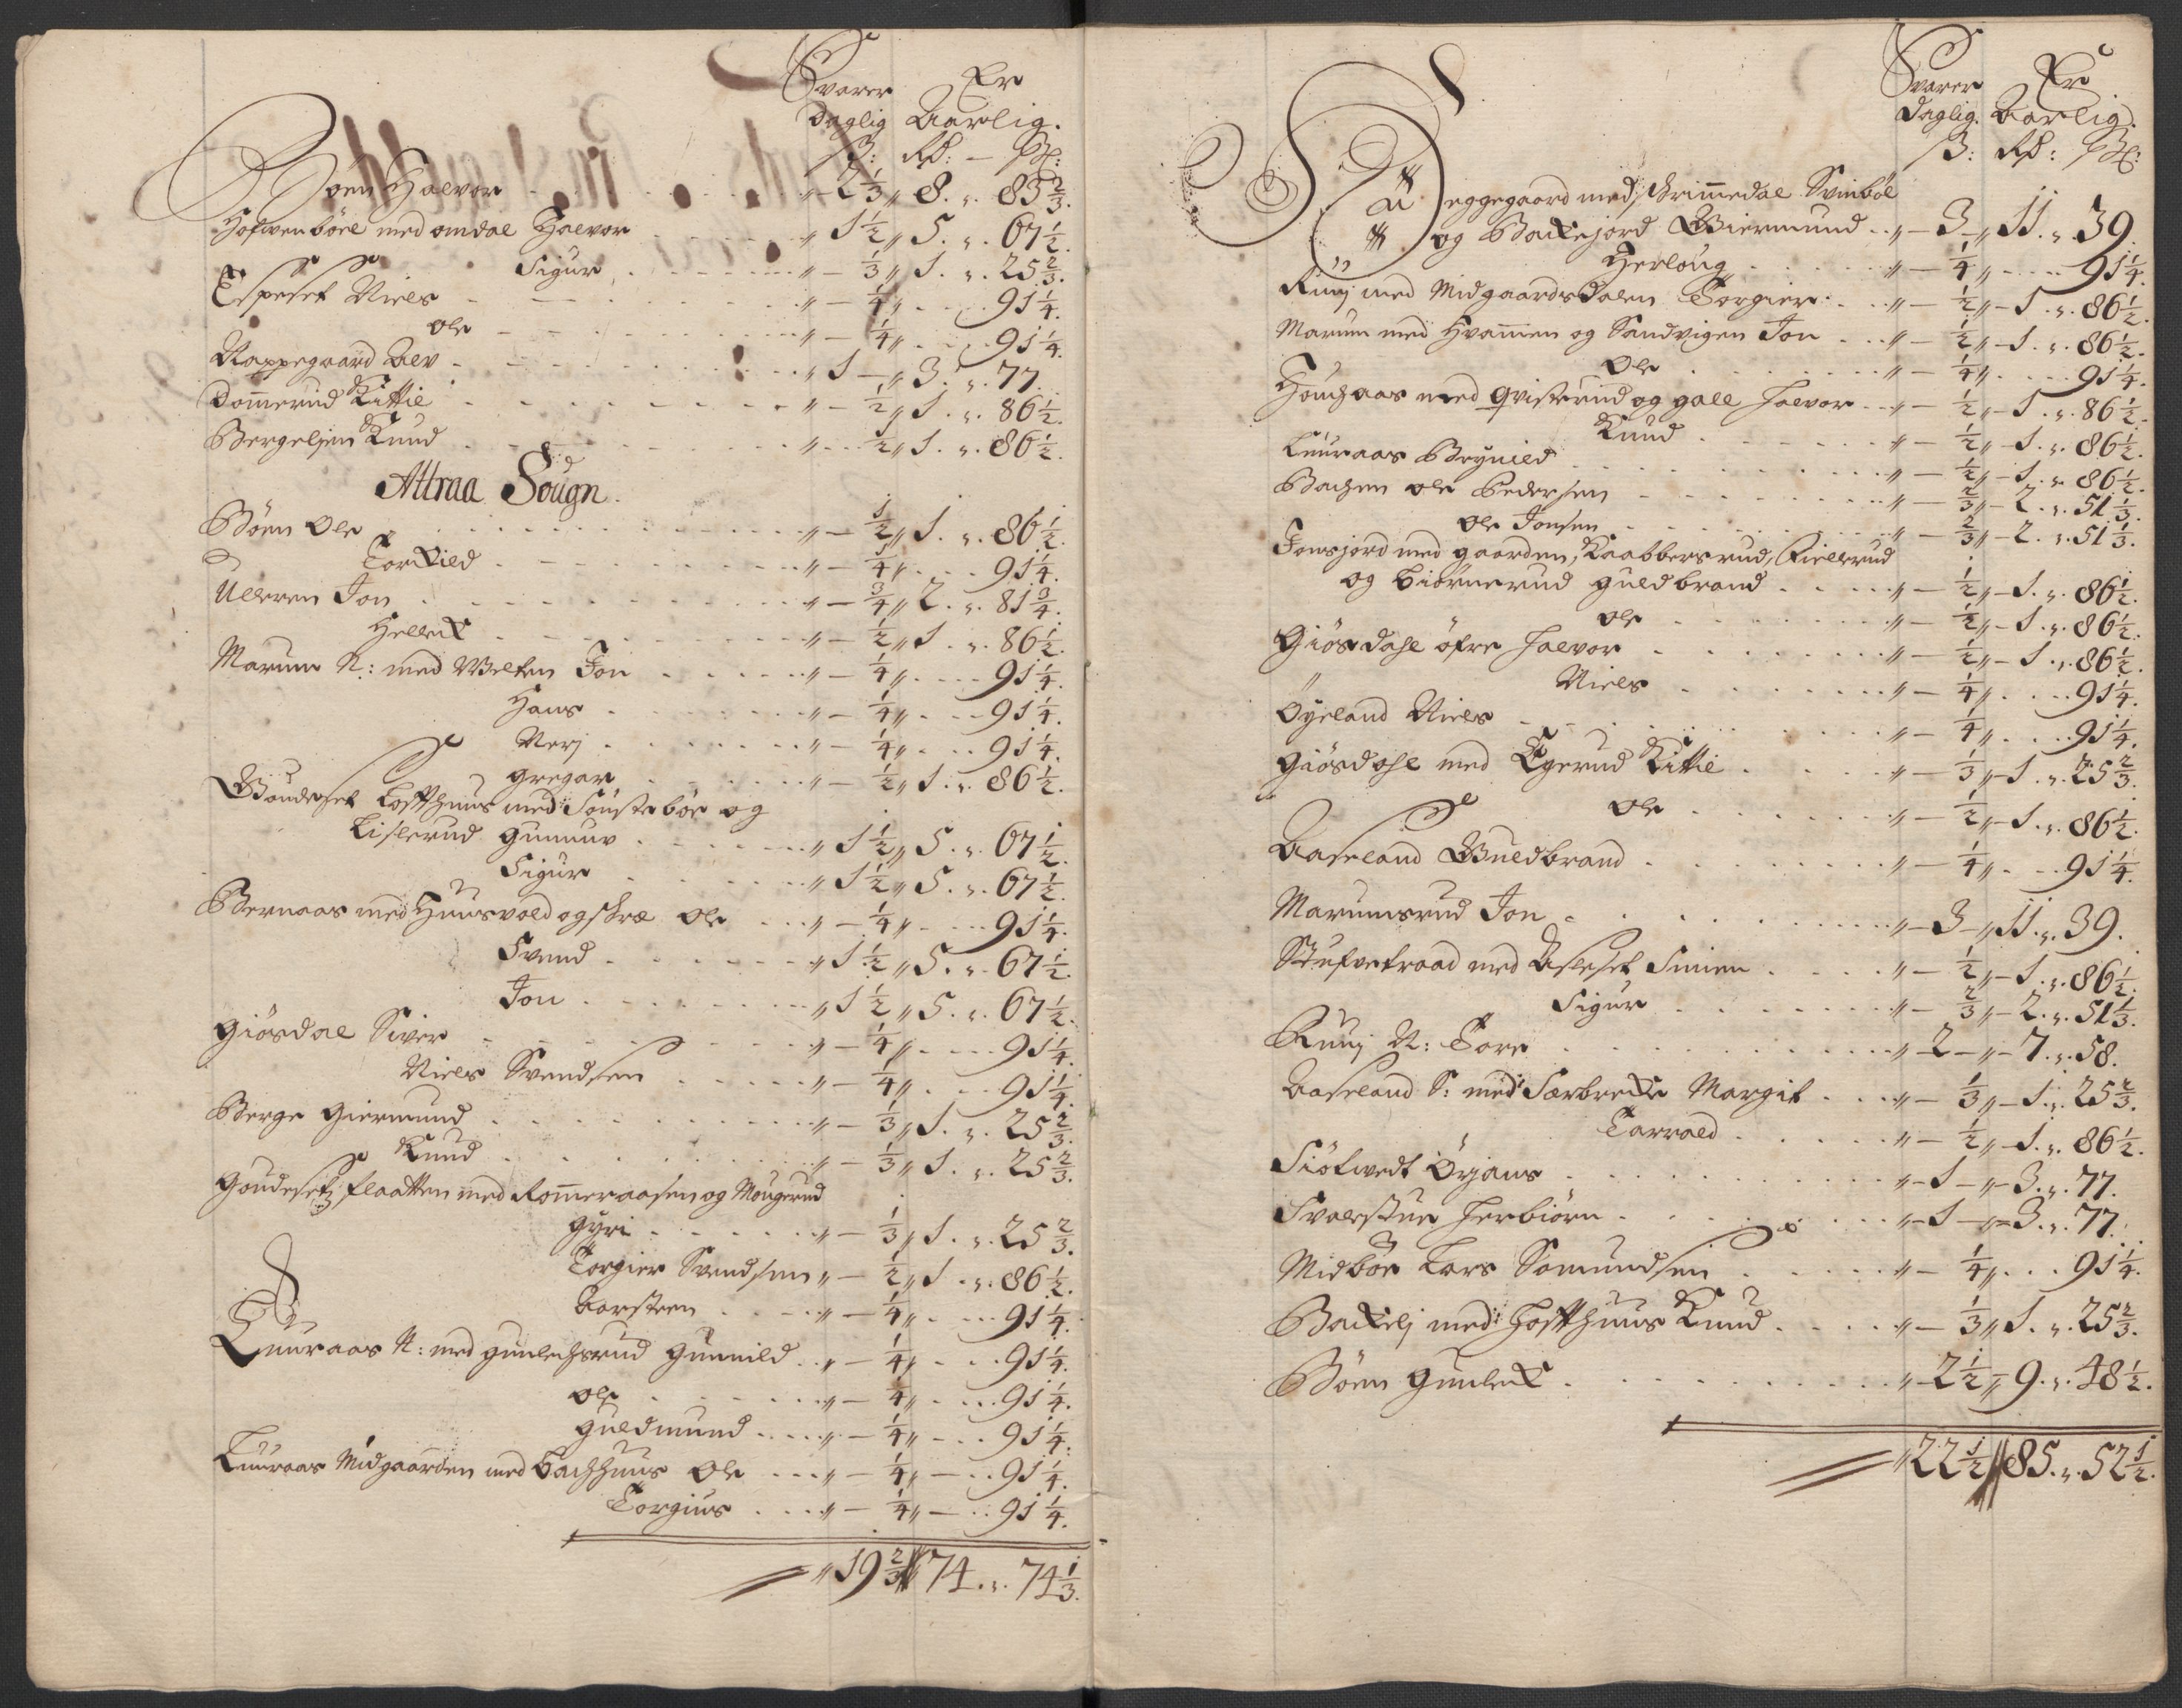 Svarer Er
Daglig Aarlig.
ß: Rd: — ß:
Böen Halvor „ 2 1/3 „ 8. „. 83 2/3.
Hofwenböle med omdal Halvor „ 1 1/2 „ 5. „. 67 1/2.
Sigur „ — 1/3 „ 1. „. 25 2/3.
Espeset Niels „ — 1/4 „ 91 1/4.
Ole „ — 1/4 „ 91 1/4.
Rappegaard Alv „ 1 — „ 3. „. 77.
Dommerud Kittil „ — 1/2 „ 1. „. 86 1/2.
Bergeljen Knud „ 1/2 „ 1. „. 86 1/2.
Attraa Sougn.
Böen Ole „ — 1/2 „ 1. „. 86 1/2.
Torkild „ — 1/4 „ 91 1/4.
Ulleren Jon „ — 3/4 „ 2. „. 81 3/4.
Hellik „ — 1/2 „ 1. „. 86 1/2.
Marum N: med Welten Jon „ — 1/4 „ 91 1/4.
Hans „ — 1/4 „ 91 1/4.
Nerj „ — 1/4 „ 91 1/4.
gregar „ — 1/2 „ 1. „. 86 1/2.
Boudeset Loffthuus med Sönstebör og
Lislerud gunnuv „ 1 1/2 „ 5. „. 67 1/2.
Sigur „ 1 1/2 „ 5. „. 67 1/2.
Bernaas med Huusvold og skræ Ole „ — 1/4 „ 91 1/4.
Svend „ 1 1/2 „ 5. „. 67 1/2.
Jon „ 1 1/2 „ 5. „. 67 1/2.
Giösdal Siver „ — 1/4 „ 91 1/4.
Niels Svendsen „ — 1/4 „ 91 1/4.
Berge Giermund „ — 1/3 „ 1. „. 25 2/3.
Knud „ — 1/3 „ 1. „. 25 2/3.
Goudeset flaatten med Rommeraasen og Mougerud
gyri „ — 1/3 „ 1. „. 25 2/3.
Torgier Svendsen „ — 1/2 „ 1. „. 86 1/2.
Aarsteen „ — 1/4 „ 91 1/4.
Luuraas N: med gunlechsrud gunnild „ — 1/4 „ 91 1/4.
Ole „ — 1/4 „ 91 1/4.
guldmund „ — 1/4 „ 91 1/4.
Luuraas Midgaarden med Bachhuus Ole „ — 1/4 „ 91 1/4.
Torgius „ — 1/4 „ 91 1/4.
„ 19 2/3 „ 74. „. 74 1/3.
Svarer Er
Daglig. Aarlig.
ß: Rd: ß:
eggegaard med, Grimmedal Svinböl
og Backejord Giermund „ — 3 — „ 11. „. 39.
Herloug „ — 1/4 „ 91 1/4.
Ruuj med Midgaardsdalen Torgier „ — 1/2 „ — 1. „. 86 1/2.
Marum med Hvammen og Sandvigen Jon „ — 1/2 „ — 1. „. 86 1/2.
Ole „ — 1/4 „ 91 1/4.
Houghaas med Qvisterud og gall Halvor „ — 1/2 „ — 1. „. 86 1/2.
Knud „ — 1/2 „ — 1. „. 86 1/2.
Luuraas Brynild „ — 1/2 „ — 1. „. 86 1/2.
Bachen Ole Pedersen „ — 2/3 „ — 2. „. 51 1/3.
Ole Jonsen „ — 2/3 „ — 2. „. 51 1/3.
Jonsjord med gaarden, Kaabbersrud, Kiellerud
og Biörnerud guldbrand „ — 1/2 „ — 1. „. 86 1/2.
Ole „ — 1/2 „ — 1. „. 86 1/2.
Giösdahl öfre Halvor „ — 1/2 „ — 1. „. 86 1/2.
Niels „ — 1/4 „ 91 1/4.
Öyeland Niels „ — 1/4 „ 91 1/4.
Giösdahl med Egerud Kittil „ — 1/3 „ — 1. „. 25 2/3.
Ole „ — 1/2 „ — 1. „. 86 1/2.
Aaseland Guldbrand „ — 1/4 „ 91 1/4.
Marumsrud Jon „ — 3 — „ 11. „. 39.
Stufvetraad med Asleset Simen „ — 1/2 „ — 1. „. 86 1/2.
Sigur „ — 2/3 „ — 2. „. 51 1/3.
Ruuj N: Tore „ 2 — „ — 7. „. 58.
Aaseland S: med Særbrecke Margit „ — 1/3 „ — 1. „. 25 2/3.
Tarrald „ — 1/2 „ — 1. „. 86 1/2.
Siötvedt Örjans „ — 1 — „ — 3. „. 77.
Svalestue Herbiörn „ — 1 — „ — 3. „. 77.
Midböe Lars Somundsen „ — 1/4 „ 91 1/4.
Backelj med Hoffthuus Knud „ — 1/3 „ 1. „. 25 2/3.
Böen gunleck „ 2 1/2 „ 9. „. 48 1/2.
„ 22 1/2 „ 85. „. 52 1/2.